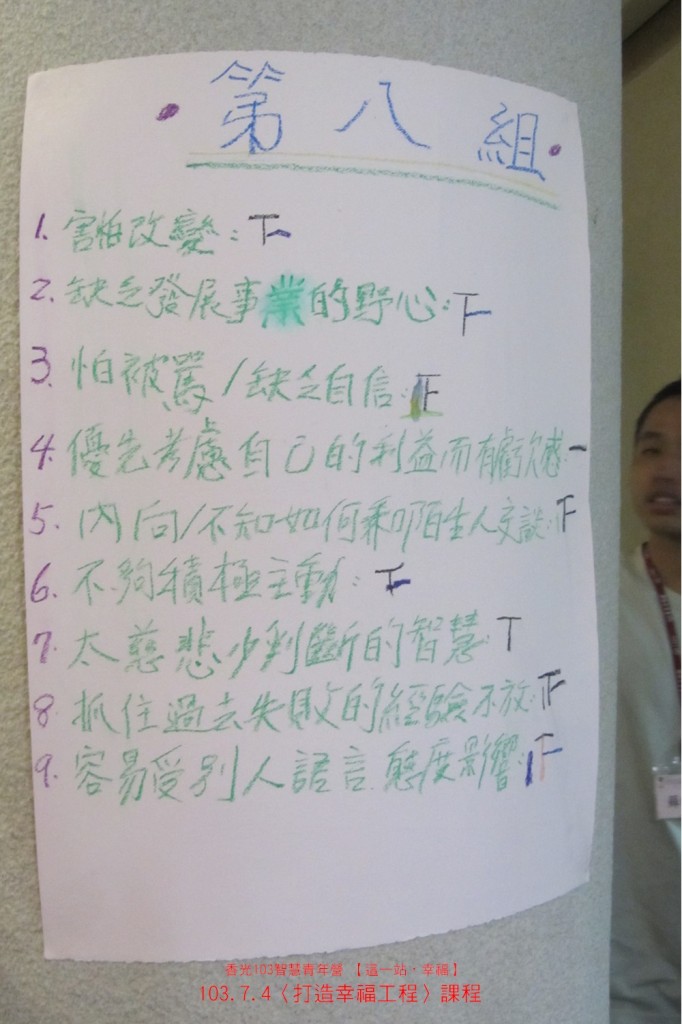 第八組
1. 害怕改變：下
2. 缺乏發展事業的野心：下
3. 怕被罵/缺乏自信：正
4. 優先考慮自己的利益而有虧欠感 一
5. 內向/不知如何和陌生人交談：下
6. 不夠積極主動：下
7. 太慈悲少判斷的智慧：丅
8. 抓住過去失敗的經驗不放：正
9. 容易受別人語言.態度影響：正
香光103智慧青年營 【這一站，幸福】
103.7.4〈打造幸福工程〉課程